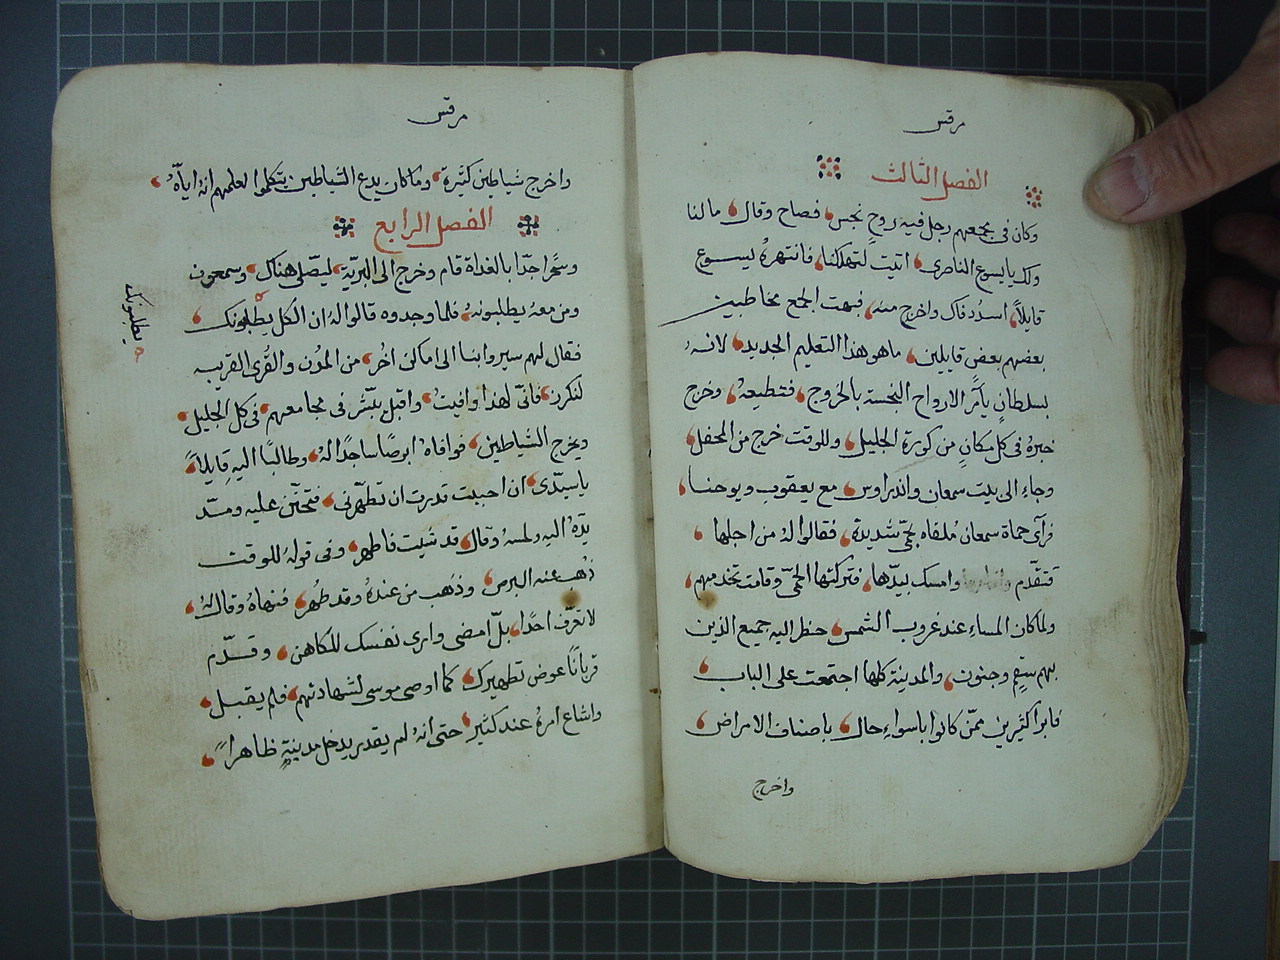 مرقس
الفصل الثالث
وكان في مجمعهم رجل فيه روح نجس، فصاح وقال، ما لنا
ولك يا يسوع الناصري، اتيت لتهلكنا، فانتهرهُ يسوع
قايلاً، اسدد فاك واخرج منه، فبهت الجمع مخاطبين
بعضهم بعض قايلين، ما هو هذا التعليم الجديد، لانهُ
بسلطانٍ يأمر الارواح النجسة بالخروج، فتطيعهُ، وخرج
خبرهُ في كل مكانٍ من كورة الجليل، وللوقت خرج من المحفل،
وجاء الى بيت سمعان واندراوس، مع يعقوب ويوحنا،
فرآى حماة سمعان مُلقاه بحمّى شديدة، فقالوا لهُ من اجلها،
فتقدّم وامسك بيدّها، فتركتها الحمّى وقامت تخدمهم،
ولما كان المساء عند غروب الشمس، حضر اليه جميع الذين
بهم سقمٍ وجنون، والمدينة كلها اجتمعت على الباب،
فابرا كثيرين ممّن كانوا باسواءِ حال، باصناف الامراض،
واخرج
مرقس
واخرج شياطين كثيرة، وما كان يدع الشياطين يتكلموا لعلمهم انهُ اياهُ،
الفصل الرابع
وسحَراً جدّا بالغداة قام وخرج الى البريّة، ليصّلي هناك، وسمعون
ومن معهُ يطلبونهُ، فلما وجدوه قالوا لهُ ان الكل يطلبونك،
يطلبونك
فقال لهم سيروا بنا الى اماكن اُخر، من المُدن والقُرى القريبه
لنكرز، فانّي لهذا وافيتُ، واقبل يبّشر في مجامعهم، في كل الجليل،
ويخرج الشياطين، فوافاهُ ابرصًا ساجدًا لهُ، وطالبًا اليهِ قايلاً،
يا سيّدي، ان احببت قدرت ان تطهّرني، فتحنّن عليه ومدّ
يدّهُ اليه ولمسهُ وقال، قد شيت فاطهر، وفي قوله للوقت
ذُهب عنه البرص، وذُهب من عندهُ وقد طهُر، فنهاهُ وقال لهُ،
لا تعرّف احدًا، بل امضي واري نفسك للكاهن، وقدّم
قربانًا عوض تطهيرك، كما اوصى موسى لشهادتهم، فلم يقبل،
واشاع امرهُ عند كثير، حتى انهُ لم يقدر يدخل مدينةٍ ظاهراً،